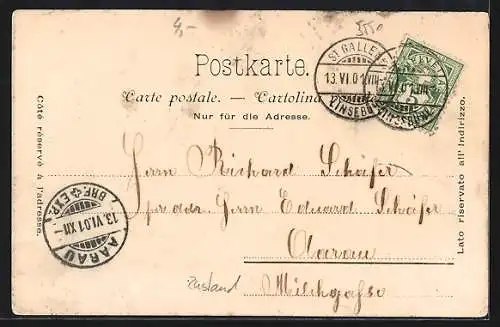 4,-
Postkarte.
Carte postale. — Cartolina
Nur für die Adresse.
Côté réservé à l'adresse.
Lato riservato all' Indirizzo.
ST. GALLEN
13.VI.01.VIII
LINSEBÜHL
HELVETIA
5
Herrn Richard Schäfer
per adr. Herrn Eduard Schäfer
Aarau
Milchgasse
Zustand
AARAU
13.VI.01.XII
BRF. EXP.